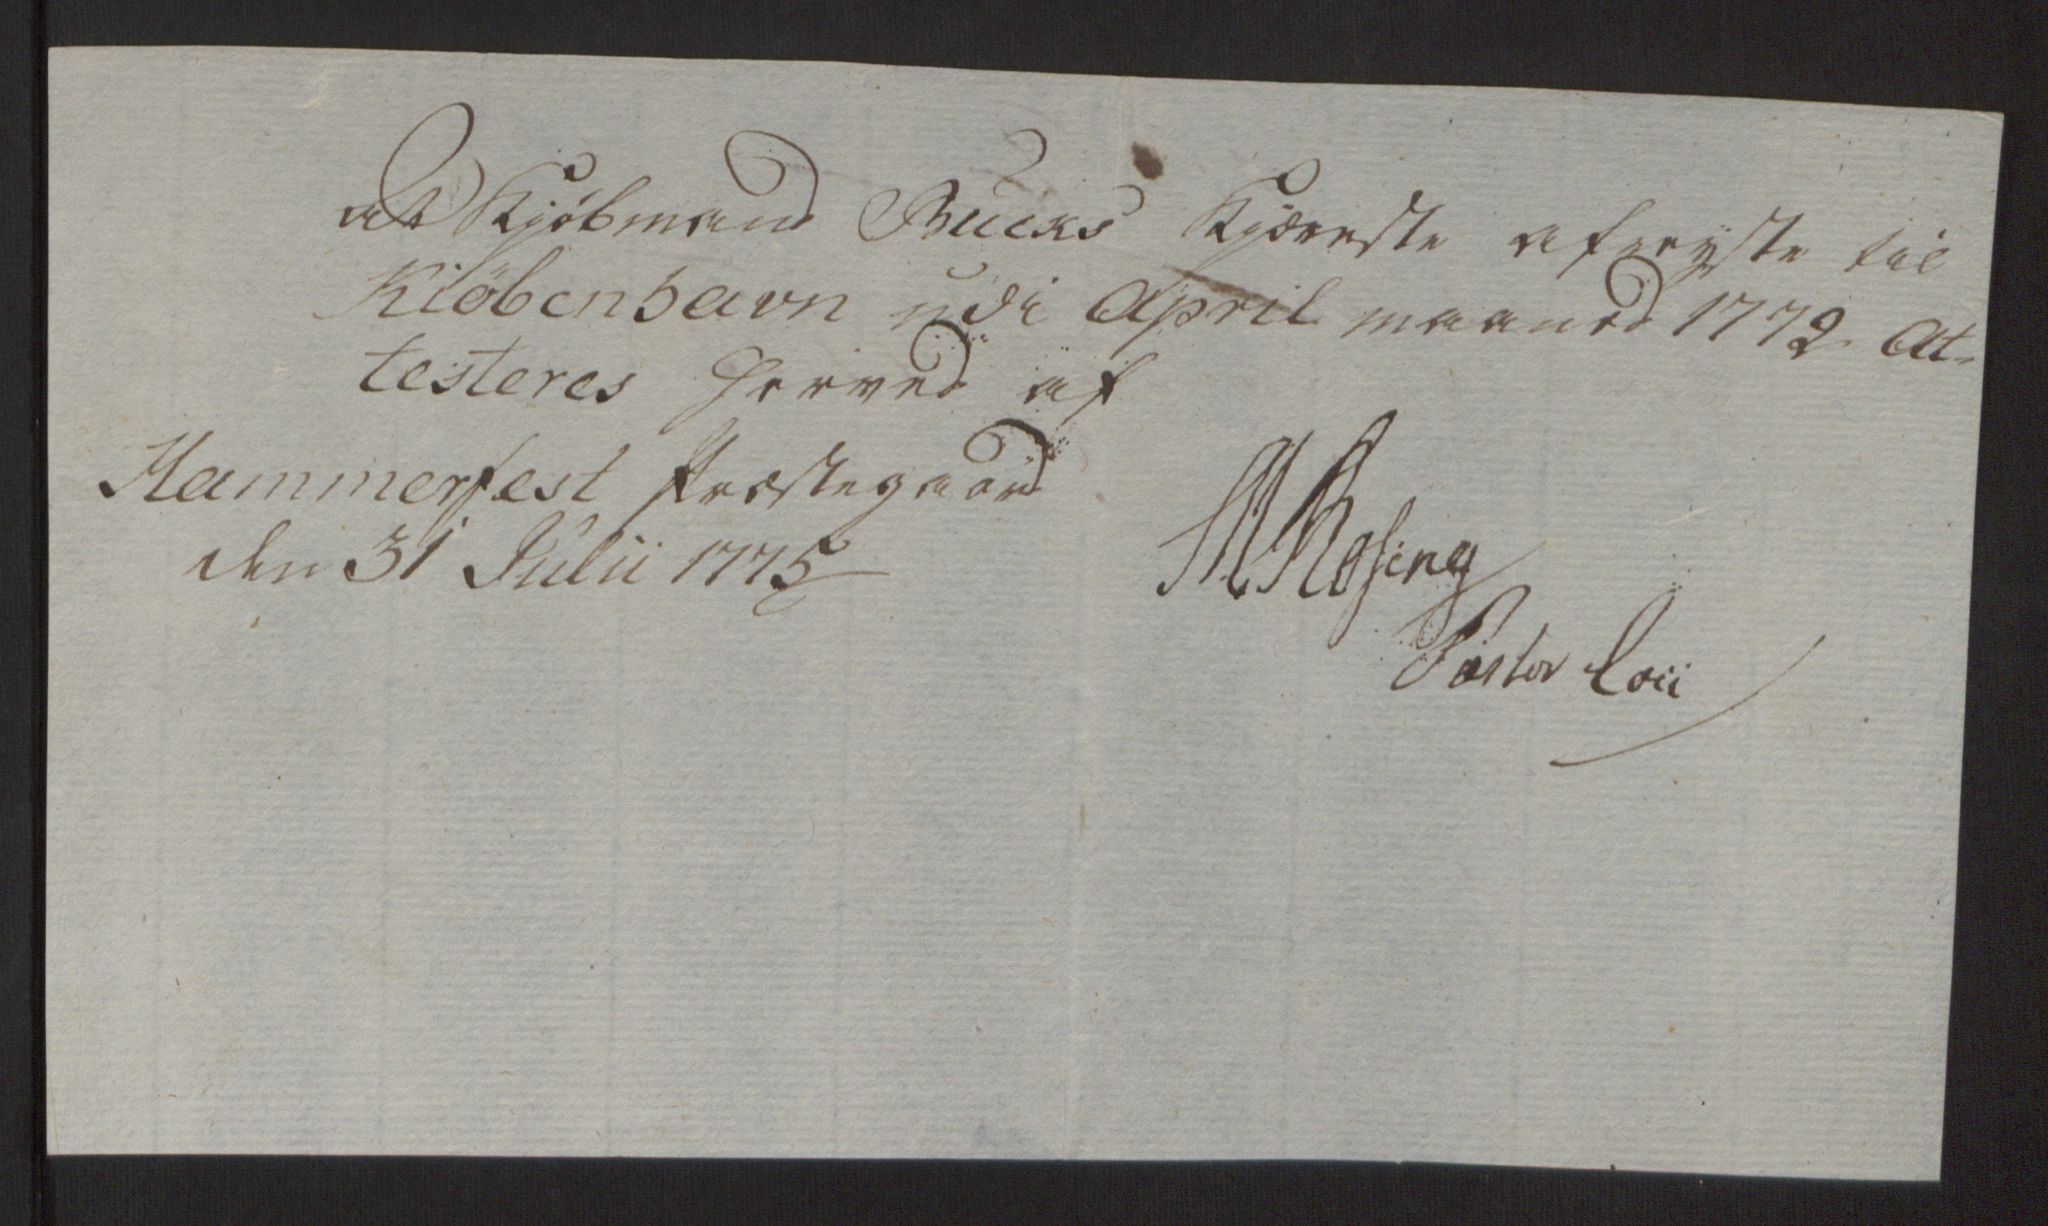 at Kjøbmand Bucks Kjæreste afreyste til
Kiøbenhavn udi April maaned 1772 At-
testeres herved af
Hammerfest Præstegaard
den 31 Julii 1775
M Rosing
Pastor Loci